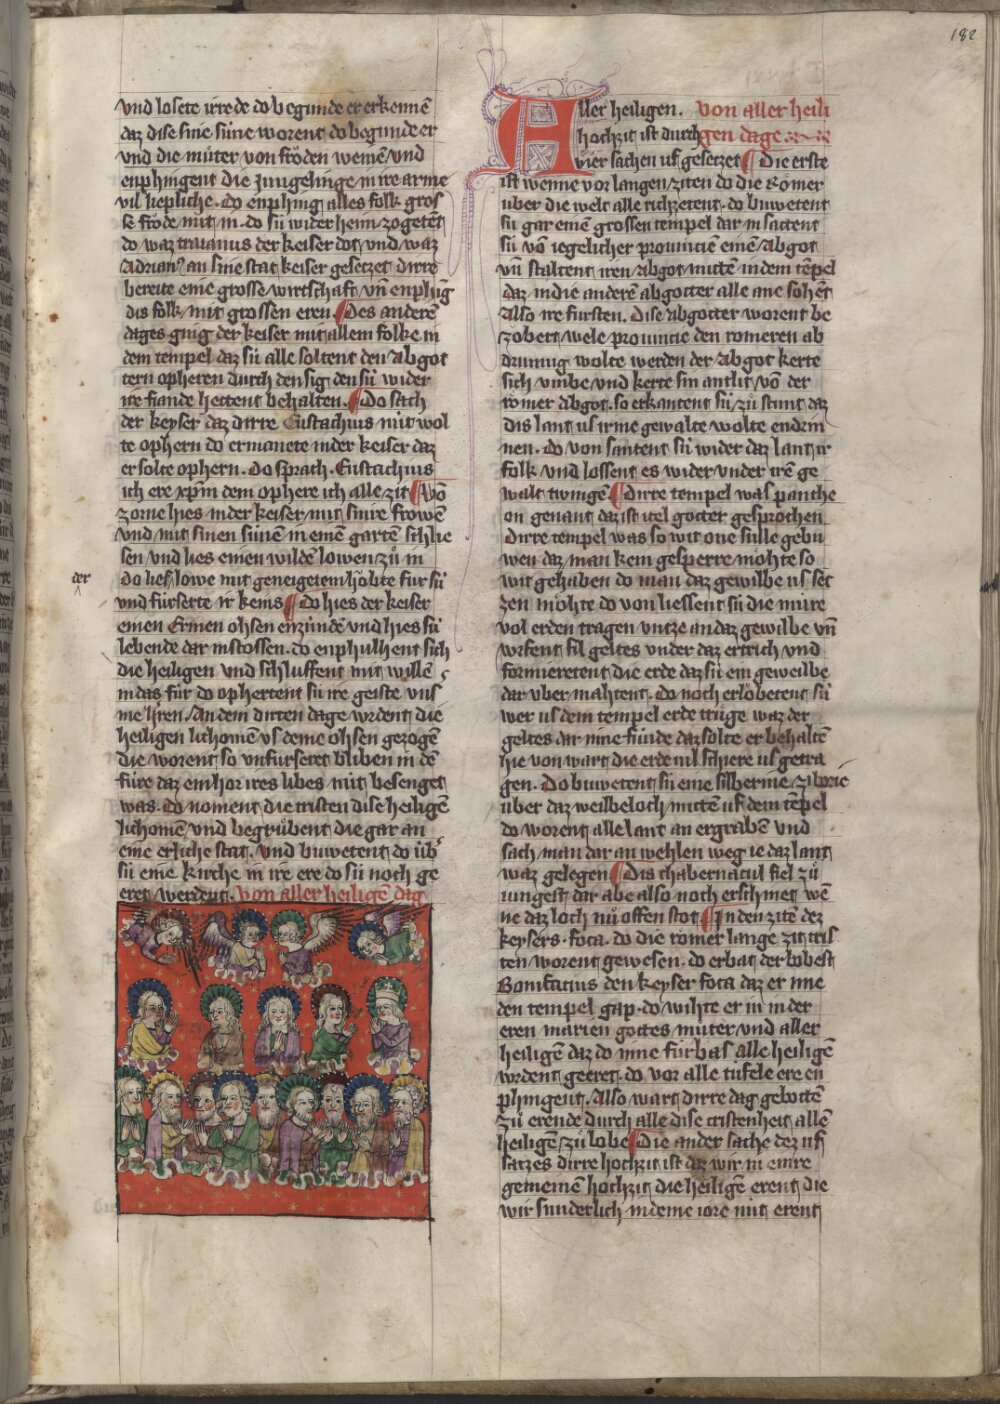 182
vnd losete irrede do begunde er erkennē
daz dise sine súne worent do begunde er
vnd die můter von frôden weinē vnd
enphingent die Jungelinge in ire arme
vil liepliche. do enphing alles folk gros
se frôde mit in. do sú wider heim zogetēt
do waz traianus der keiser dot, vnd waz
Adrianꝰ an sine stat keiser gesetzet dirre
bereite eine grosse wirtschaft vn̄ enphīg
dis folk mit grossen eren. Des anderē
dages ging der keiser mit allem folke in
dem tempel daz sú alle soltent den abgöt
tern opheren durch den sig den sú wider
ire fiande hettent behalten. Do sach
der keyser daz dirre Eustachius nút wol
te ophern do ermanete in der keiser daz
er solte ophern. Do sprach. Eustachius
ich ere xp̄m dem ophere ich alle zit Vō
zorne hies in der keiser mit sinre frowē
vnd mit sinen súnen in einē gartē schlie
sen vnd lies einen wildē lowen zů in
do lief lowe mit geneigetem hŏbte fúr sú
der
vnd fúrserte ir keins Do hies der keiser
einen Ermen ohsen enzúndē vnd hies sú
lebende dar in stossen. do enphulhent sich
die heiligen vnd schluffent mit willē
in das fúr do ophertent sú ire geiste vns
me h̄ren. An dem dirten dage wrdent die
heiligen lichomē vs deme ohsen gezogē
die worent so vnfúrseret bliben in dē
fúre daz ein hor ires libes nút besenget
was. do noment die cristen dise heiligē
lichomē vnd begrůbent die gar an
eine erliche stat. vnd buwetent do úb̛
sú eine kirche in ire ere do sú noch ge
eret werdent. Von aller heiligē dag
Aller heiligen. Von aller heili
hochzit ist durch gen dage
vier sachen uf gesetzet Die erste
ist wenne vor langen ziten do die Rômer
úber die welt alle richzetent. do buwetent
sú gar einē grossen tempel dar in sattent
sú vō iegelicher prouincien einē abgot
vn̄ staltent iren abgot mittē in dem tēpel
daz in die anderē abgötter alle ane sohēt
Also ire fúrsten. Dise abgötter worent be
zobert wele prouincie den romeren ab
drúnnig wolte werden der abgot kerte
sich vmbe vnd kerte sin antlit vō der
romer abgot. so erkantent sú zů stunt daz
dis lant us irme gewalte wolte endrin
nen. do von santent sú wider daz lant ir
folk vnd lossent es wider vnder irē ge
walt twingē Dirre tempel was panthe
on genant daz ist itel götter gesprochen
dirre tempel was so wit one sulle gebu
wen daz man kein gesperre môhte so
wit gehaben do man daz gewilbe us set
zen môhte do von liessent sú die mure
vol erden tragen vntze an daz gewilbe vn̄
wrfent fil geltes vnder daz ertrich vnd
formieretent die erde daz sú ein geweilbe
dar vber mahtent. do noch erlŏbetent sú
wer us dem tempel erde trúge waz der
geltes dar inne fúnde daz solte er behaltē
hie von wart die erde vil schiere us getra
gen. Do buwetent sú eine silberine ziborie
úber daz weilbeloch mittē uf dem tēpel
do worent alle lant an ergrabē vnd
sach man dar an wehlen weg ie daz lant
waz gelegen Dis thabernacul fiel zů
iungest dar abe also noch erschinet wē
ne daz loch nú offen stot In den zitē dez
keysers. foca. do die romer lange zit cris
ten worent gewesen. do erbat der bobest
Bonifatius den keyser foca daz er ime
den tempel gap. do wihte er in in der
eren marien gottes můter vnd aller
heiligē daz do inne fúrbas alle heiligē
wrdent geeret. do vor alle túfele ere en
phingent. Also wart dirre dag gebottē
zů erende durch alle dise cristenheit allē
heiligē zů lobe Die ander sache dez uf
satzes dirre hochzit ist daz wir in einre
gemeinē hochzit die heiligē erent die
wir sunderlich in deme iore nút erent